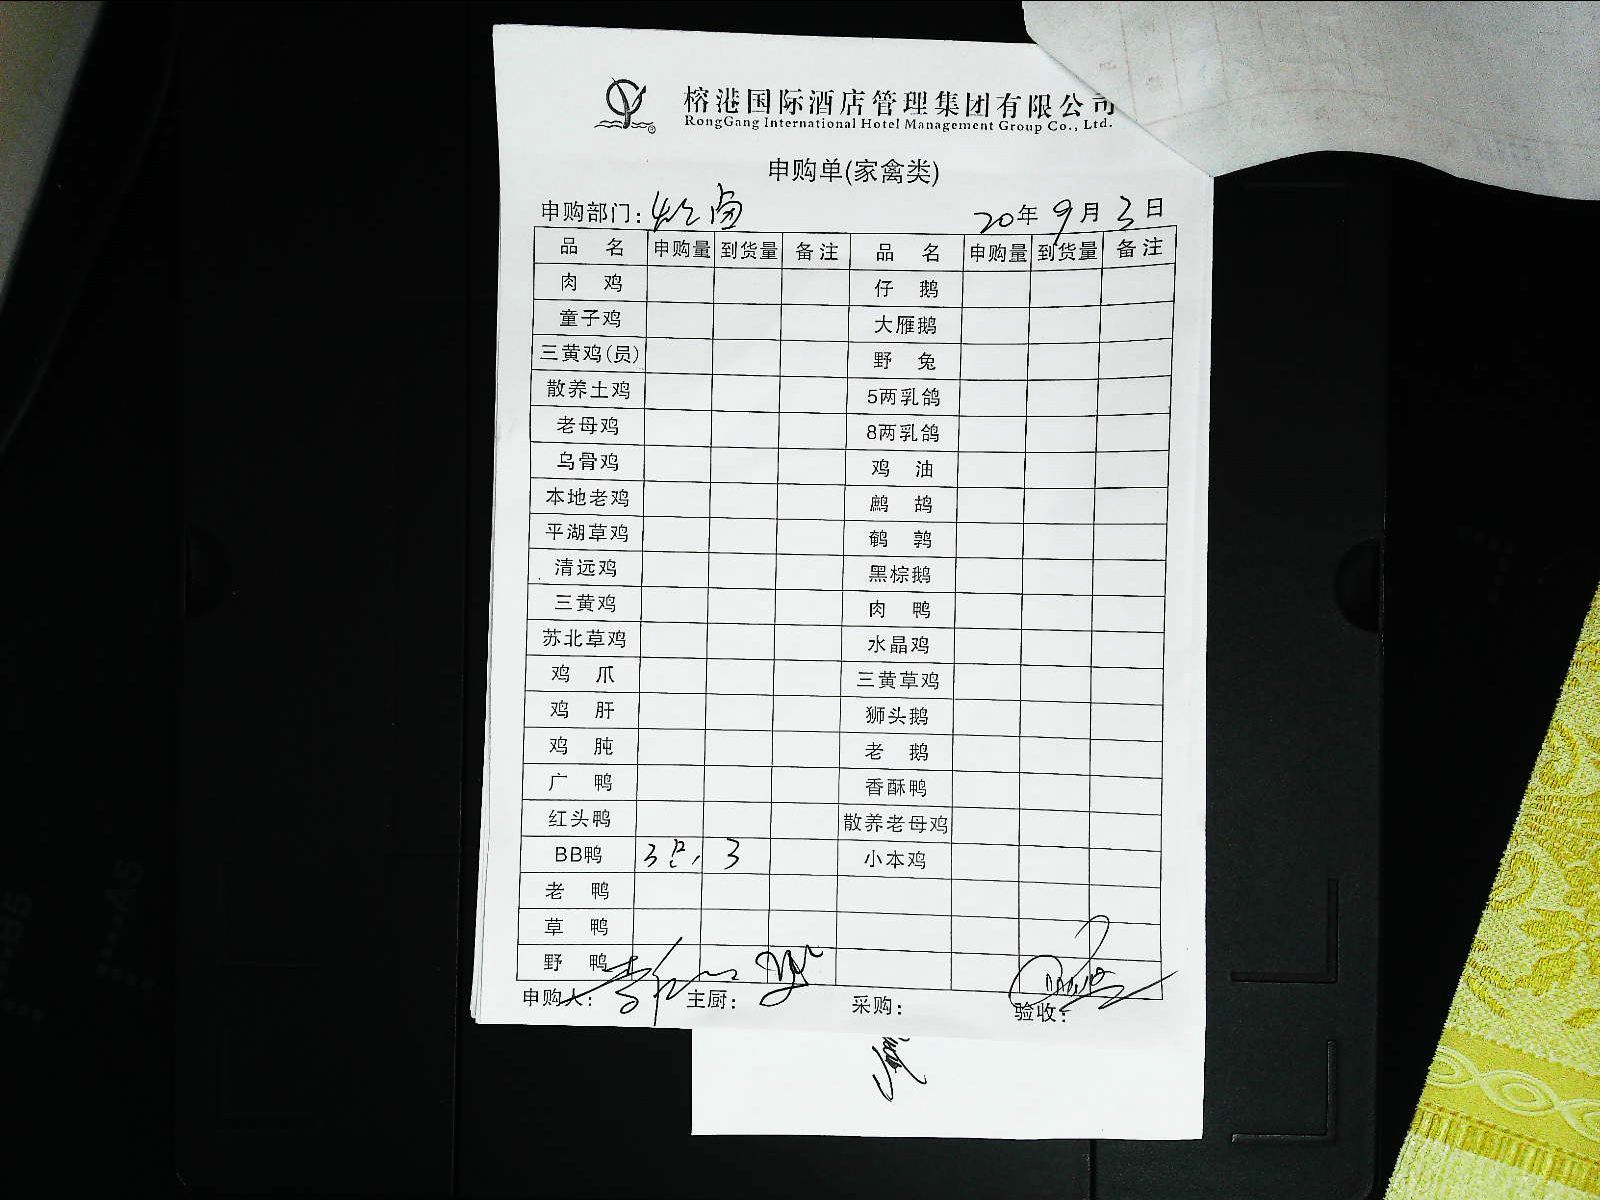 榕港国际酒店管理集团有限公司
RongGang International Hotel Management Group Co., Ltd.
申购单(家禽类)
申购部门: 20年9月3日
品 名 申购量 到货量 备注 品 名 申购量 到货量 备注
肉 鸡 仔 鹅
童子鸡 大雁鹅
三黄鸡(员) 野 兔
散养土鸡 5两乳鸽
老母鸡 8两乳鸽
乌骨鸡 鸡 油
本地老鸡 鹧 鸪
平湖草鸡 鹌 鹑
清远鸡 黑棕鹅
三黄鸡 肉 鸭
苏北草鸡 水晶鸡
鸡 爪 三黄草鸡
鸡 肝 狮头鹅
鸡 肫 老 鹅
广 鸭 香酥鸭
红头鸭 散养老母鸡
BB鸭 3只 3 小本鸡
老 鸭
草 鸭
野 鸭
申购人: 主厨: 采购: 验收: